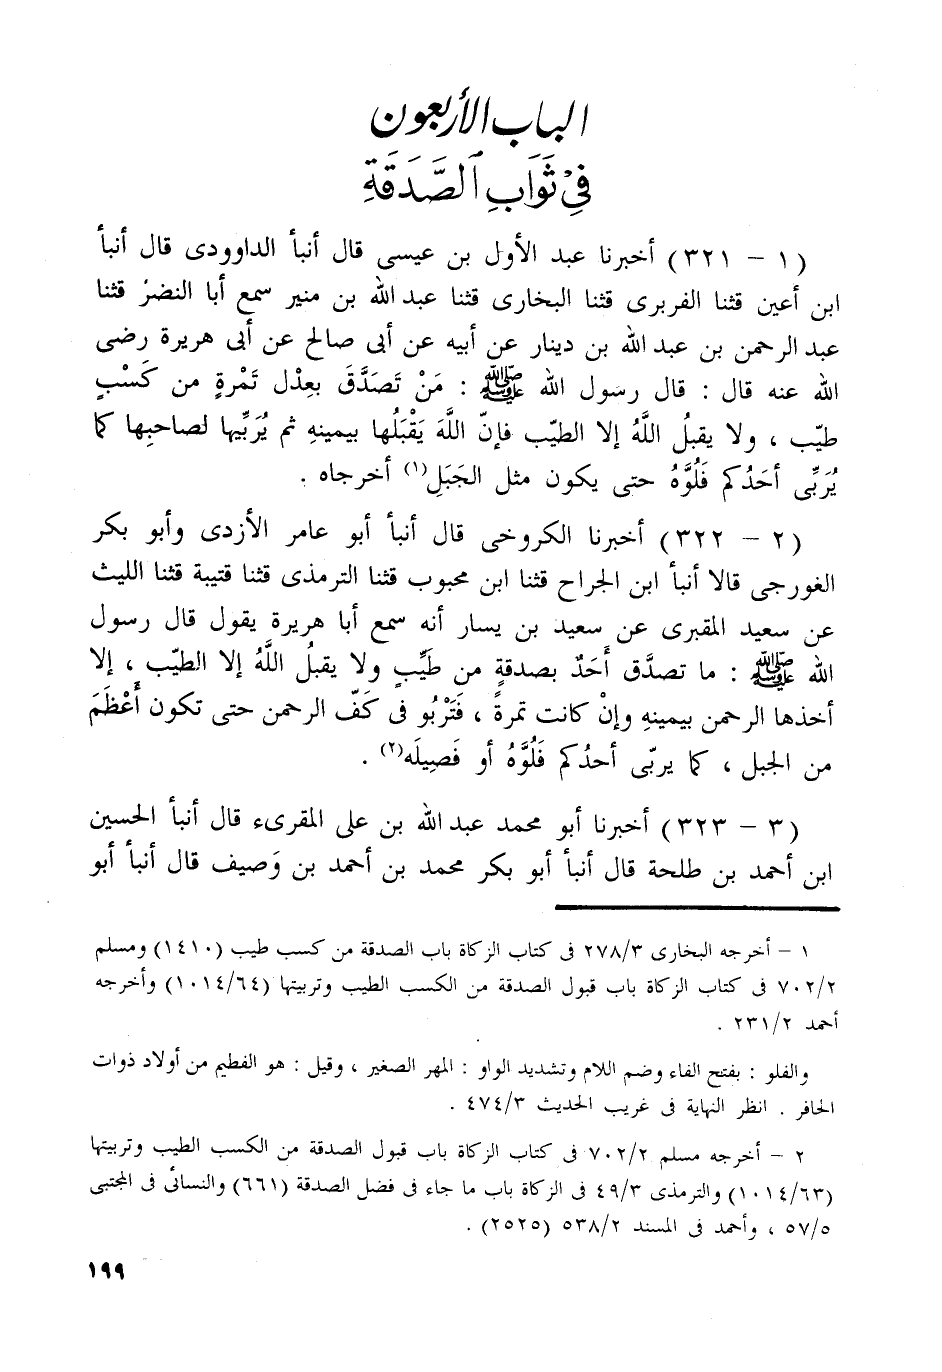 الباب الأربعون
فِي ثَوَابِ ٱلصَّدَقَةِ
(١ – ٣٢١) أخبرنا عبد الأول بن عيسى قال أنبأ الداوودى قال أنبأ
ابن أعين قثنا الفربرى قثنا البخارى قثنا عبد الله بن منير سمع أبا النضرْ قثنا
عبد الرحمن بن عبد الله بن دينار عن أبيه عن أبى صالح عن أبى هريرة رضى
الله عنه قال : قال رسول الله ﷺ : مَنْ تَصَدَّقَ بعِدْل تَمْرةٍ من كَسْبٍ
طيّب ، ولا يقبلُ اللَّهُ إلا الطيّب فإنّ اللَّهَ يَقْبَلُها بيمينهِ ثم يُرَبِّيها لصاحبِها كما
يُرَبِّى أحَدُكم فَلُوَّهُ حتى يكون مثل الجَبَلِ(١) أخرجاه .
(٢ – ٣٢٢) أخبرنا الكروخى قال أنبأ أبو عامر الأزدى وأبو بكر
الغورجى قالا أنبأ ابن الجراح قثنا ابن محبوب قثنا الترمذى قثنا قتيبة قثنا الليث
عن سعيد المقبرى عن سعيد بن يسار أنه سمع أبا هريرة يقول قال رسول
الله ﷺ : ما تصدَّق أَحَدٌ بصدقةٍ من طَيِّبٍ ولا يقبلُ اللَّهُ إلا الطيّب ، إلا
أخذها الرحمن بيمينهِ وإنْ كانت تمرةً ، فَتَرْبُو فى كَفّ الرحمن حتى تكون أَعْظَمَ
من الجبل ، كما يربّى أحدُكم فَلُوَّهُ أو فَصِيلَه(٢) .
(٣ – ٣٢٣) أخبرنا أبو محمد عبد الله بن على المقرىء قال أنبأ الحسين
ابن أحمد بن طلحة قال أنبأ أبو بكر محمد بن أحمد بن وَصيف قال أنبأ أبو
١ – أخرجه البخارى ٢٧٨/٣ فى كتاب الزكاة باب الصدقة من كسب طيب (١٤١٠) ومسلم
٧٠٢/٢ فى كتاب الزكاة باب قبول الصدقة من الكسب الطيب وتربيتها (١٠١٤/٦٤) وأخرجه
أحمد ٢٣١/٢ .
والفلو : بفتح الفاء وضم اللام وتشديد الواو : المهر الصغير ، وقيل : هو الفطيم من أولاد ذوات
الحافر . انظر النهاية فى غريب الحديث ٤٧٤/٣ .
٢ – أخرجه مسلم ٧٠٢/٢ فى كتاب الزكاة باب قبول الصدقة من الكسب الطيب وتربيتها
(١٠١٤/٦٣) والترمذى ٤٩/٣ فى الزكاة باب ما جاء فى فضل الصدقة (٦٦١) والنسائى فى المجتبى
٥٧/٥ ، وأحمد فى المسند ٥٣٨/٢ (٢٥٢٥) .
١٩٩